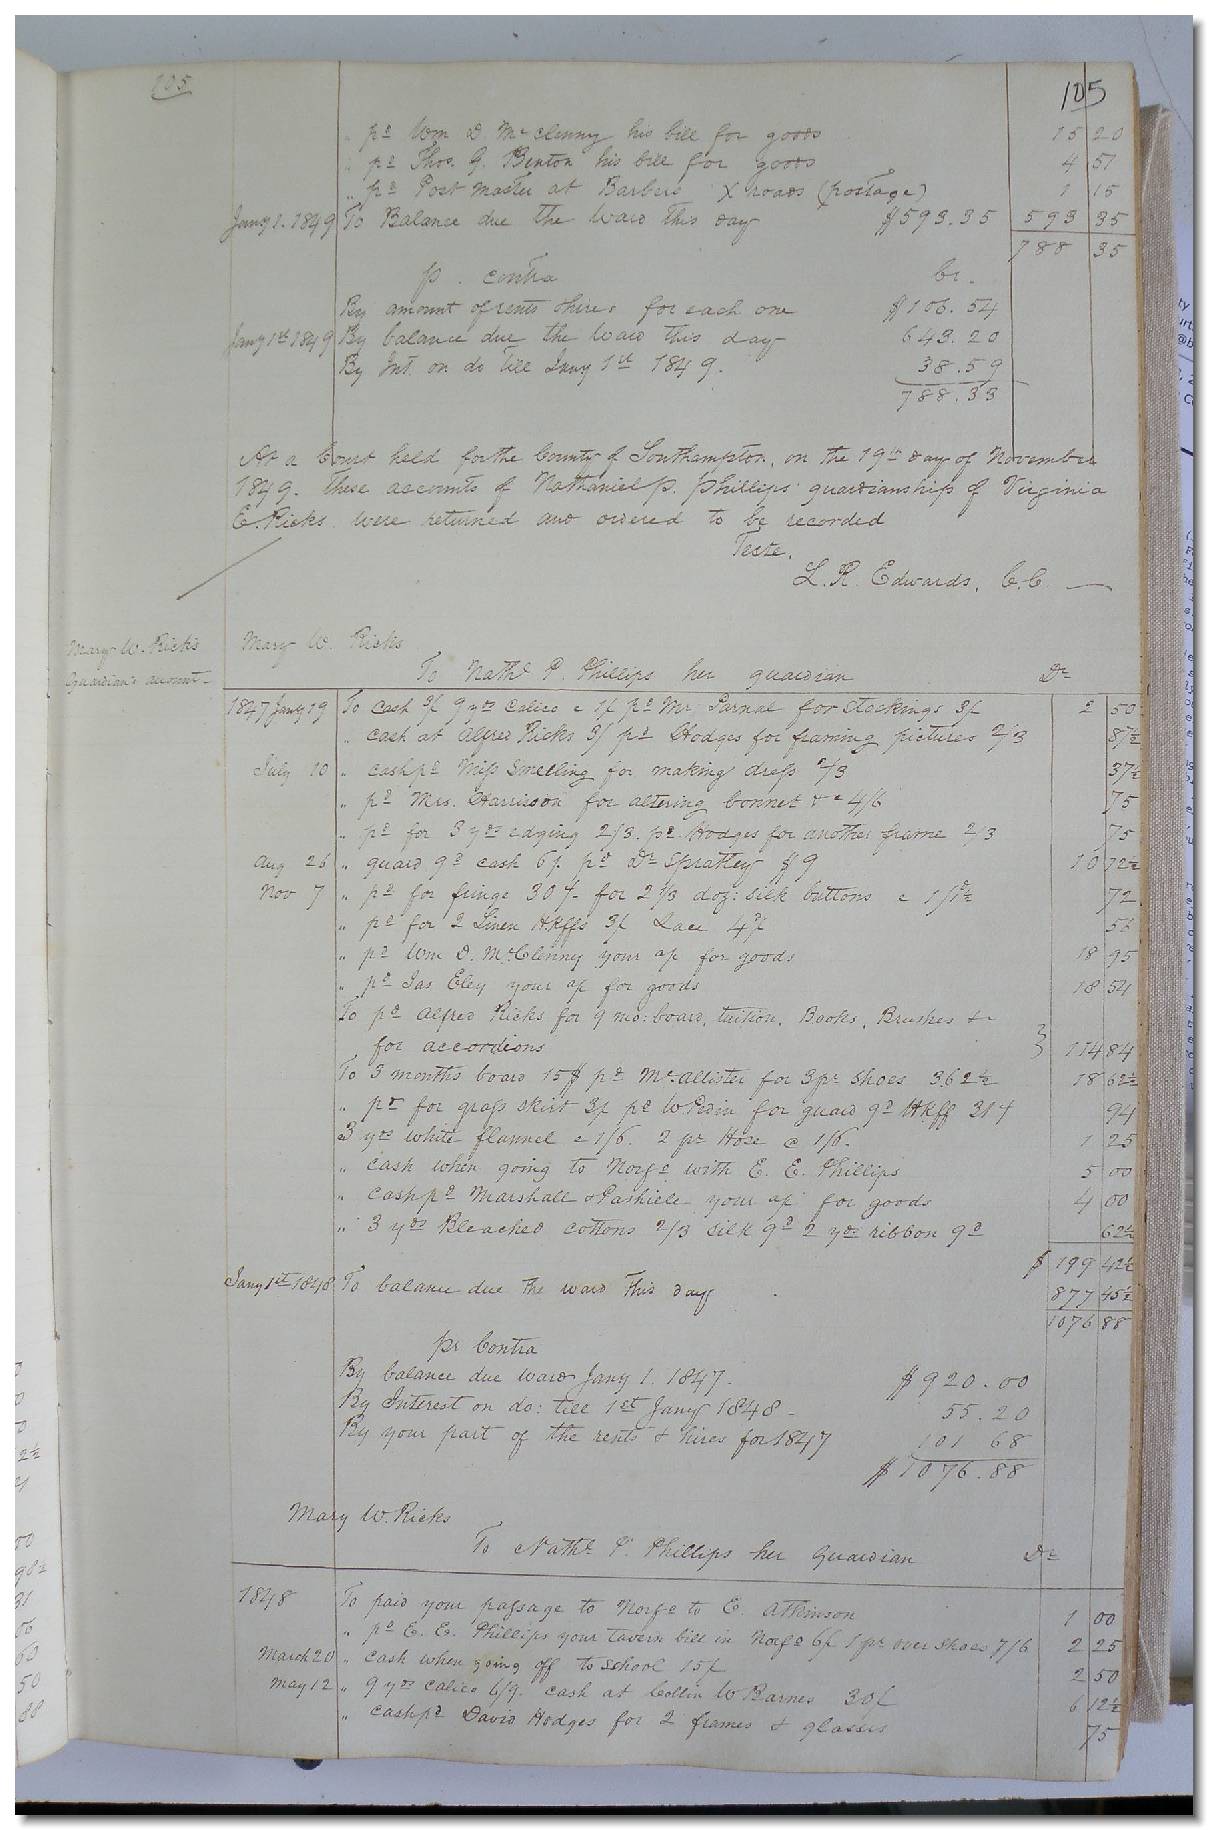 105
105
" pd Wm D. McClenny his bill for goods 15 20
" pd Thos. G. Benton his bill for goods 4 51
" pd Post master at Barbers X roads (postage) 1 15
Jany 1. 1849 To Balance due the Ward this day $593.35 593 35
788 35
p. contra Cr.
By amount of rents & hires for each one $106.54
Jany 1st 1849 By balance due the Ward this day 643.20
By Int. on do till Jany 1st 1849. 38.59
788.33
At a Court held for the County of Southampton, on the 19th day of November
1849. These accounts of Nathaniel P. Phillips guardianship of Virginia
E. Ricks were returned and ordered to be recorded
Teste.
L. R. Edwards, C.C.
Mary W. Ricks
Guardian's account
Mary W. Ricks
To Nathl P. Phillips her guardian Dr
1847 Jany 19 To cash 3/ 9 yds calico @ 1/ pd Mr Parnal for stockings 3/ 2 50
" cash at Alfred Ricks 3/ pd Hodges for framing pictures 2/3 87½
July 10 " cash pd Miss Smelling for making dress 2/3 37½
" pd Mrs. Harrison for altering bonnet &c 4/6 75
" pd for 3 yds edging 2/3. pd Hodges for another frame 2/3 75
Aug 26 " guard 9d cash 6/ pd Dr Spratley $9 10 72½
Nov 7 " pd for fringe for 2/3 doz: silk buttons @ 1/1½ 72
" pd for 2 Linen Hkffs 3/ Lace 56
" pd Wm D. McClenny your a/c for goods 18 95
" pd Jas Eley your a/c for goods 18 54
To pd Alfred Ricks for 9 mo: board, tuition, Books, Brushes &c
for accordions 114 84
To 3 months board 15$ pd McAllister for 3 pr shoes 3.62½ 18 62½
" pd for grass skirt 3/ pd for guard 9d Hkff 94
3 yds white flannel @ 1/6. 2 pr Hose @ 1/6. 1 25
" cash when going to Norfc with E. E. Phillips 5 00
" cash pd Marshall & your a/c for goods 4 00
" 3 yds Bleached cottons 2/3 silk 9d 2 yds ribbon 9d 62½
$ 199 42½
Jany 1st 1848 To balance due the ward this day 877 45½
1076 88
pr Contra
By balance due ward Jany 1. 1847. $920.00
By Interest on do: till 1st Jany 1848 55.20
By your part of the rents & hires for 1847 101 68
$1076.88
Mary W. Ricks
To Nathl P. Phillips her Guardian Dr
1848 To paid your passage to Norfc to E. Atkinson 1 00
" pd E. E. Phillips your tavern bill in Norfc 6/ 1 pr over shoes 7/6 2 25
March 20 " cash when going off to school 15/ 2 50
May 12 " 9 yds calico 6/9. cash at Collin W Barnes 30/ 6 12½
" cash pd David Hodges for 2 frames & glasses 75